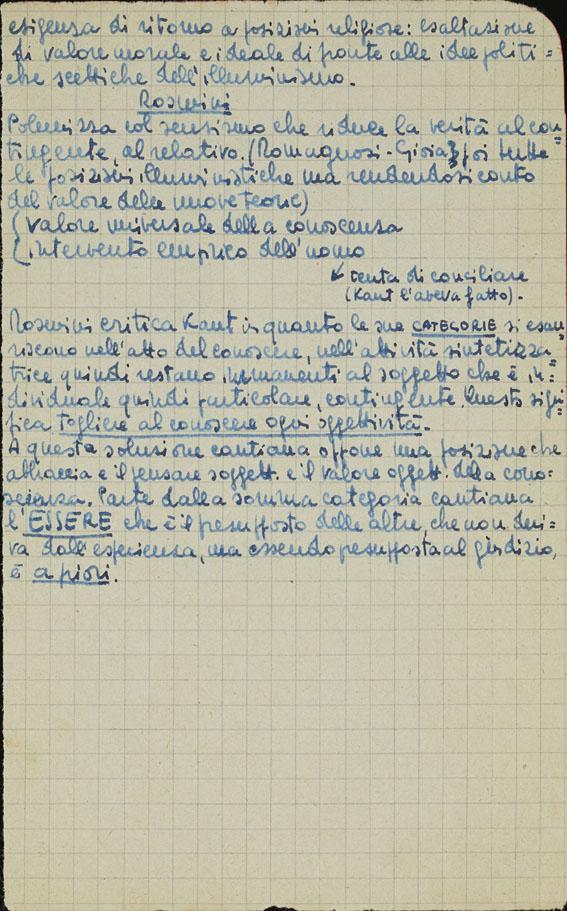 esigenza di ritorno a posizioni religiose: esaltazione
di valore morale e ideale di fronte alle idee politi=
che scettiche dell'illuminismo.
Rosmini
Polemizza col sensismo che riduce la verità al con=
tingente, al relativo. (Romagnosi - Gioia) poi tutte
le posizioni illuministiche ma rendendosi conto
del valore delle nuove teorie)
( valore universale della conoscenza
( intervento empirico dell'uomo
↙ tenta di conciliare
(Kant l'aveva fatto).
Rosmini critica Kant in quanto le sue CATEGORIE si esau=
riscono nell'atto del conoscere, nell'attività sintetizza=
trice quindi restano immanenti al soggetto che è in=
dividuale quindi particolare, contingente. Questo signi=
fica togliere al conoscere ogni oggettività.
A questa soluzione cantiana oppone una posizione che
abbraccia e il pensare soggett. e il valore oggett. della cono=
scienza. Parte dalla somma categoria cantiana
l'ESSERE che è il presupposto delle altre, che non deri=
va dall'esperienza, ma essendo presupposta al giudizio,
è a priori.